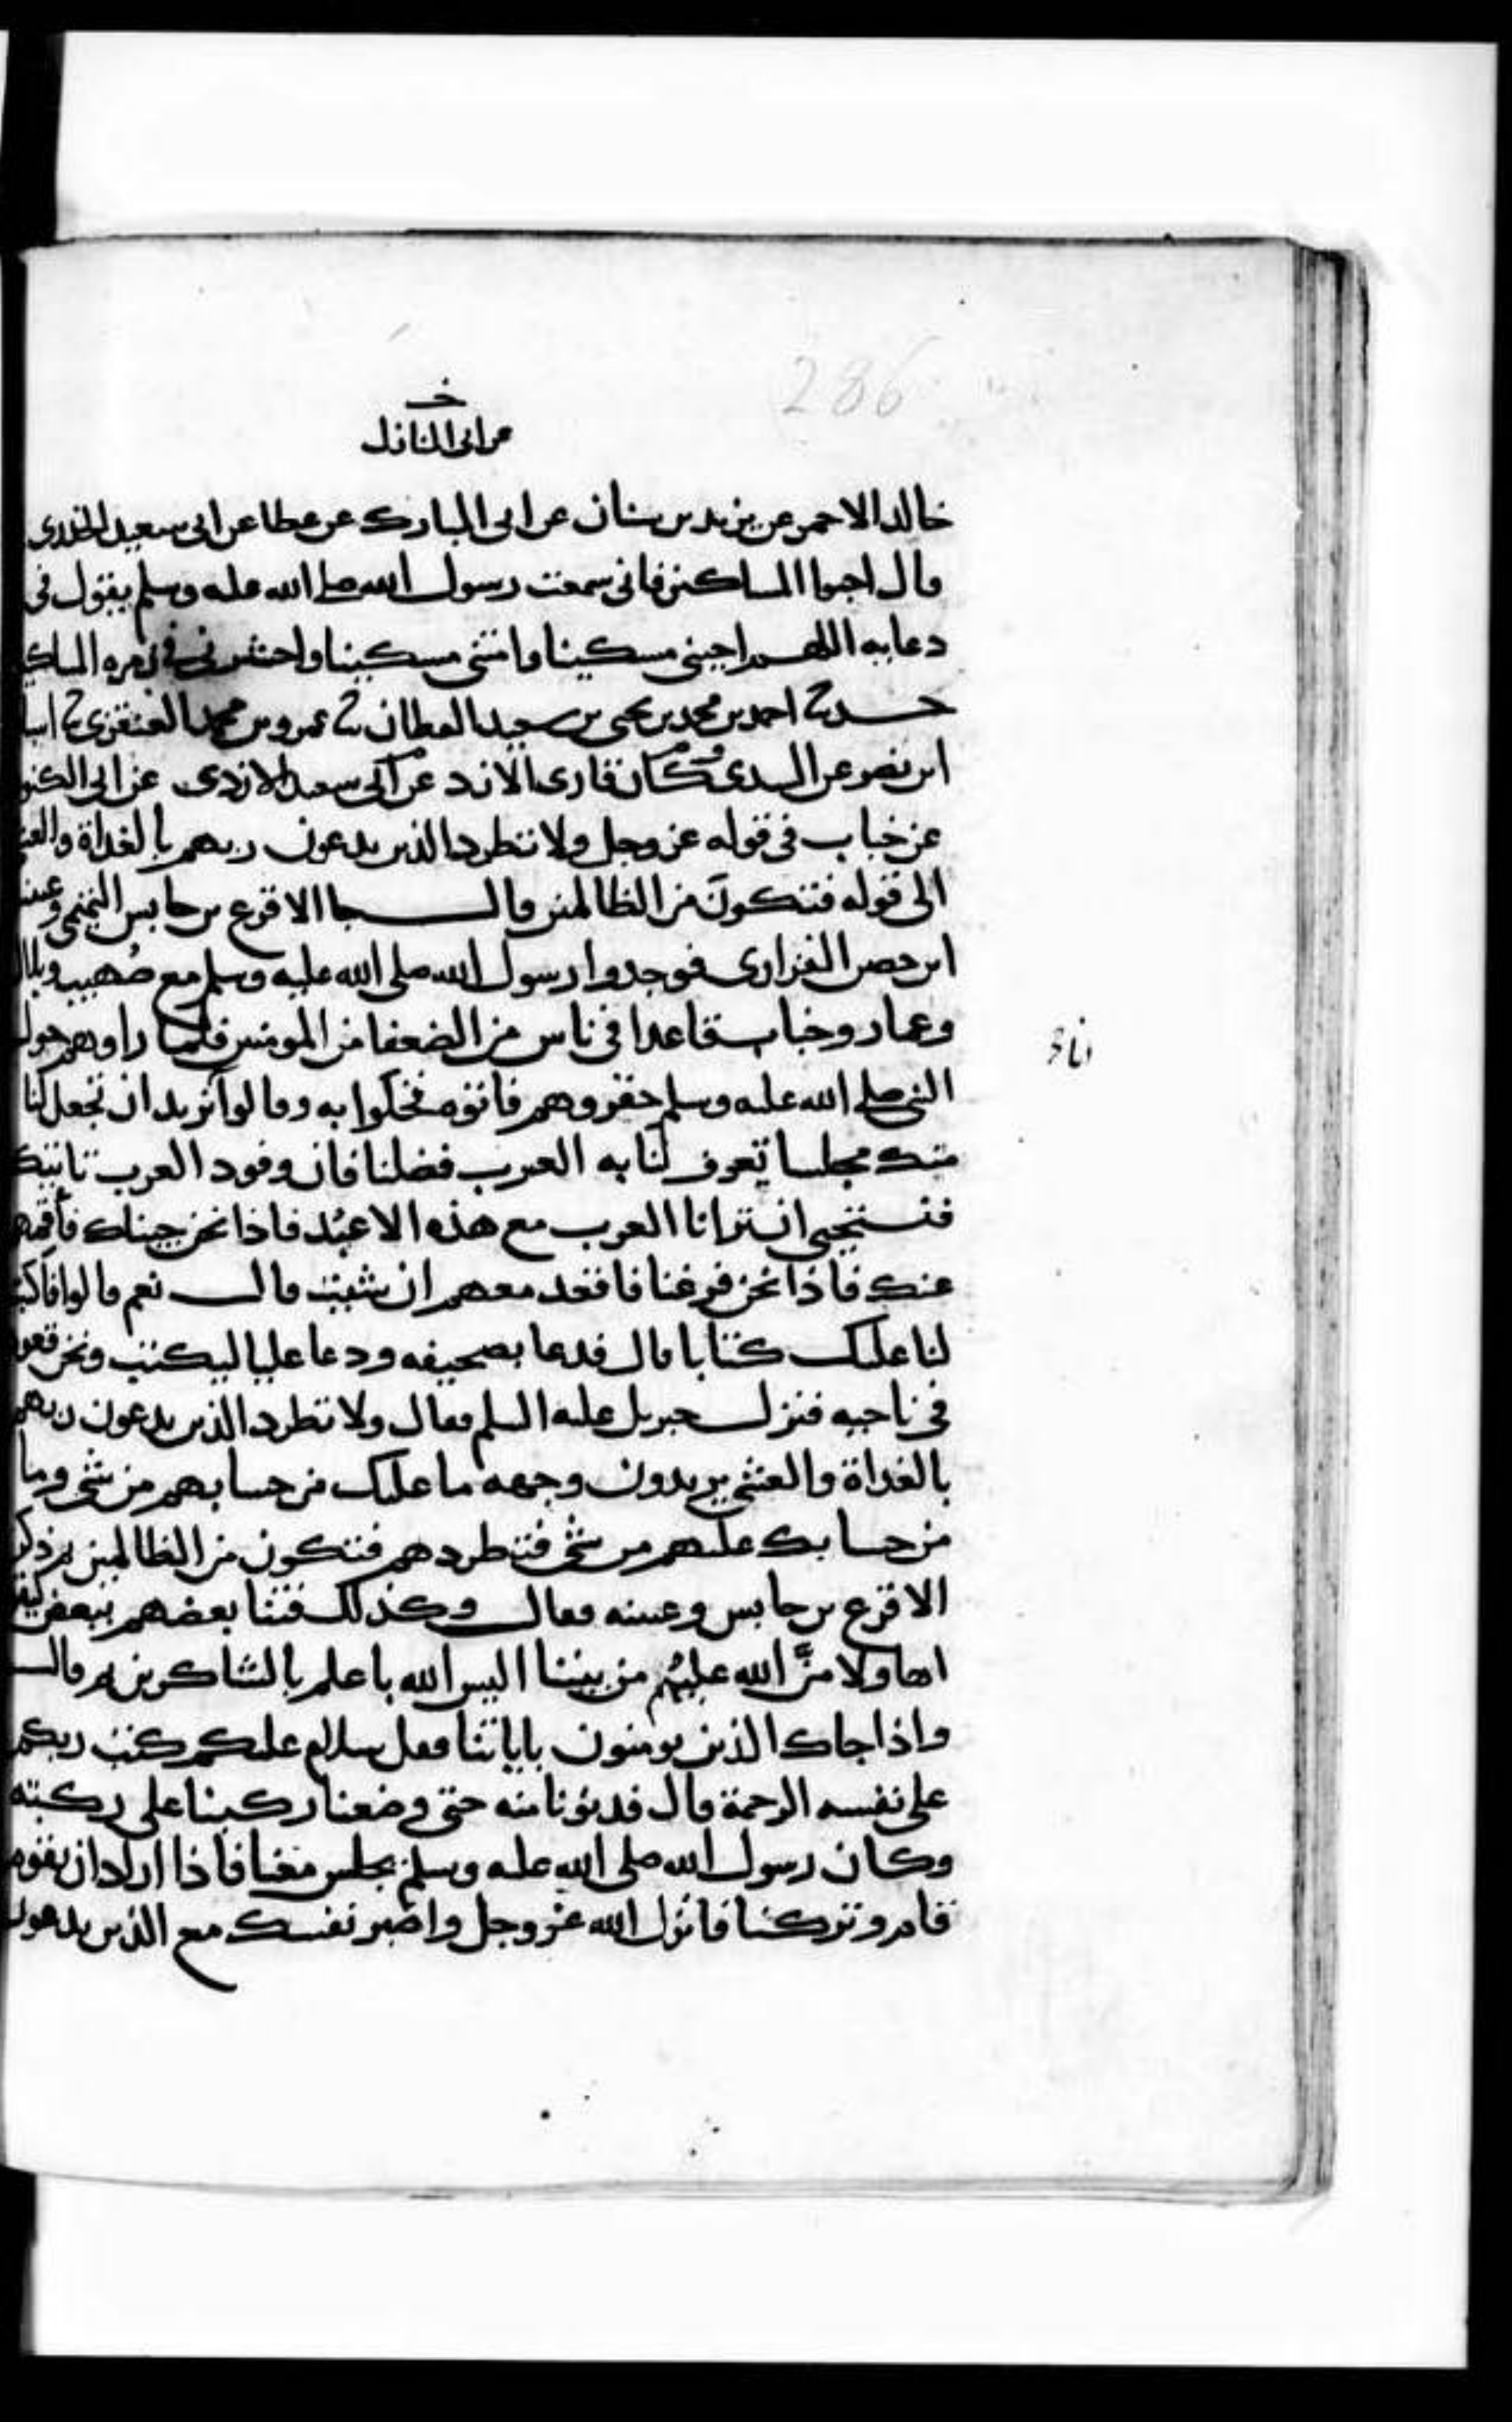 286
خ
عن ابي المنازل
خالد الاحمر عن يزيد بن سنان عن ابي المبارك عن عطا عن ابي سعيد الخدري
قال احبوا المساكين فاني سمعت رسول الله صلى الله عليه وسلم يقول في
دعايه اللهم احيني مسكينا وامتني مسكينا واحشرني في زمره المساكين
حدثنا احمد بن محمد بن يحيى بن سعيد القطان ثنا عمرو بن محمد العنقزي ثنا اسبا
ابن نصر عن السدي وكان قارى الازد عن ابي سعد الازدي عن ابي الكنو
عن خباب في قوله عز وجل ولا تطرد الذين يدعون ربهم بالغداة والعشي
الى قوله فتكون من الظالمين قال جا الاقرع بن حابس التميمي وعيينة
ابن حصن الفزاري فوجدوا رسول الله صلى الله عليه وسلم مع صهيب وبلال
وعمار وخباب قاعدا في ناس من الضعفا من المومنين فلما راوهم حول
النبي صلى الله عليه وسلم حقروهم فاتوه فخلوا به وقالوا نريد ان تجعل لنا
منك مجلسا تعرف لنا به العرب فضلنا فان وفود العرب تاتيك
فنستحيي ان ترانا العرب مع هذه الاعبد فاذا نحن جيناك فاقمهم
عنك فاذا نحن فرغنا فاقعد معهم ان شيت قال نعم قالوا فاكتب
لنا عليك كتابا قال فدعا بصحيفه ودعا عليا ليكتب ونحن قعود
في ناحيه فنزل جبريل عليه السلم فقال ولا تطرد الذين يدعون ربهم
بالغداة والعشي يريدون وجهه ما عليك من حسابهم من شي وما
من حسابك عليهم من شي فتطردهم فتكون من الظالمين ثم ذكر
الاقرع بن حابس وعيينه فقال وكذلك فتنا بعضهم ببعض ليقولوا
اهاولا من الله عليهم من بيننا اليس الله باعلم بالشاكرين ثم قال
واذا جاك الذين يومنون باياتنا فقل سلام عليكم كتب ربكم
على نفسه الرحمة قال فدنونا منه حتى وضعنا ركبنا على ركبته
وكان رسول الله صلى الله عليه وسلم يجلس معنا فاذا اراد ان يقوم
قام وتركنا فانزل الله عز وجل واصبر نفسك مع الذين يدعون